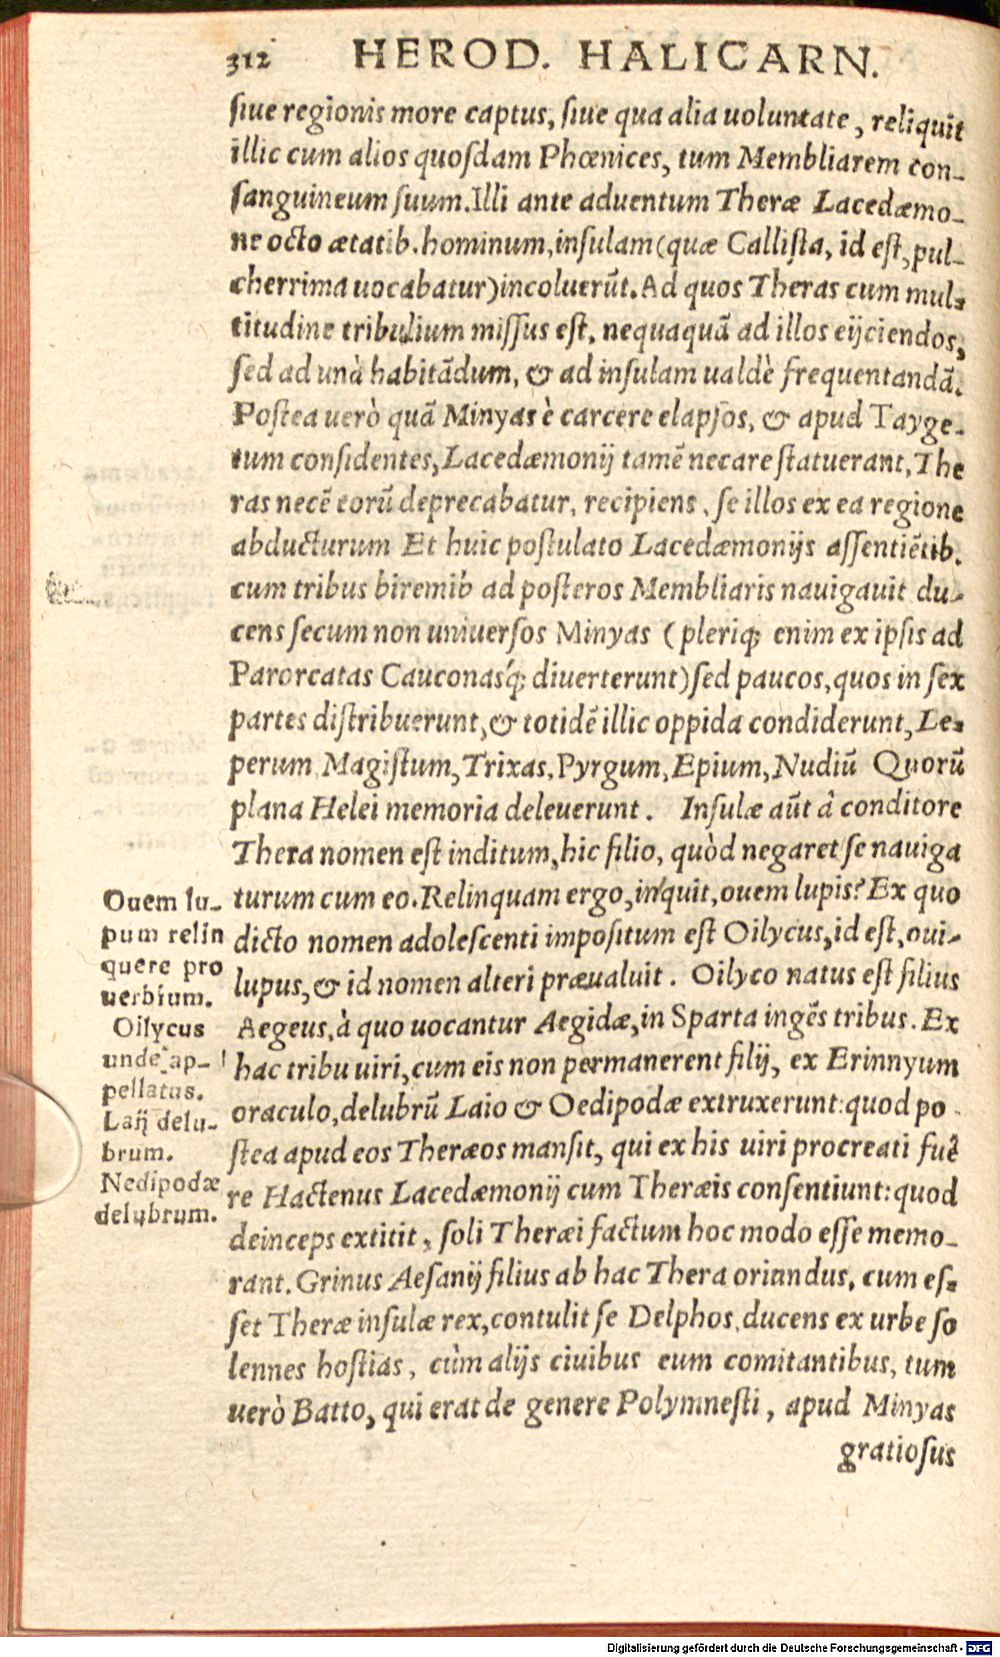 312 HEROD. HALICARN.
ſiue regionis more captus, ſiue qua alia uoluntate, reliquit
illic cum alios quoſdam Phœnices, tum Membliarem con-
ſanguineum ſuum. Illi ante aduentum Theræ Lacedæmo-
ne octo ætatib. hominum, inſulam (quæ Calliſta, id eſt, pul-
cherrima uocabatur) incoluerūt. Ad quos Theras cum mul-
titudine tribulium miſſus eſt, nequaquā ad illos eijciendos,
ſed ad unà habitādum, & ad inſulam ualdè frequentandā.
Poſtea uerò quā Minyas è carcere elapſos, & apud Tayge-
tum conſidentes, Lacedæmonij tamē necare ſtatuerant, The
ras necē eorū deprecabatur, recipiens, ſe illos ex ea regione
abducturum Et huic poſtulato Lacedæmonijs aſſentiētib.
cum tribus biremib ad poſteros Membliaris nauigauit du-
cens ſecum non uniuerſos Minyas (pleriq; enim ex ipſis ad
Parorcatas Cauconasq́; diuerterunt) ſed paucos, quos in ſex
partes diſtribuerunt, & totidē illic oppida condiderunt, Le-
perum Magiſtum, Trixas, Pyrgum, Epium, Nudiū Quorū
plana Helei memoria deleuerunt. Inſulæ aūt â conditore
Thera nomen eſt inditum, hic filio, quòd negaret ſe nauiga
turum cum eo. Relinquam ergo, inquit, ouem lupis? Ex quo
dicto nomen adoleſcenti impoſitum eſt Oilycus, id eſt, oui-
lupus, & id nomen alteri præualuit. Oilyco natus eſt filius
Aegeus, à quo uocantur Aegidæ, in Sparta ingēs tribus. Ex
hac tribu uiri, cum eis non permanerent filij, ex Erinnyum
oraculo, delubrū Laio & Oedipodæ extruxerunt: quod po
ſtea apud eos Theræos manſit, qui ex his uiri procreati fuē
re Hactenus Lacedæmonij cum Theræis conſentiunt: quod
deinceps extitit, ſoli Theræi factum hoc modo eſſe memo-
rant. Grinus Aeſanij filius ab hac Thera oriundus, cum eſ-
ſet Theræ inſulæ rex, contulit ſe Delphos, ducens ex urbe ſo
lennes hoſtias, cùm alijs ciuibus eum comitantibus, tum
uerò Batto, qui erat de genere Polymneſti, apud Minyas
gratioſus
Ouem lu-
pum relin
quere pro
uerbium.
Oilycus
unde ap-
pellatus.
Laij delu-
brum.
Nedipodæ
delubrum.
Digitalisierung gefördert durch die Deutsche Forschungsgemeinschaft - DFG